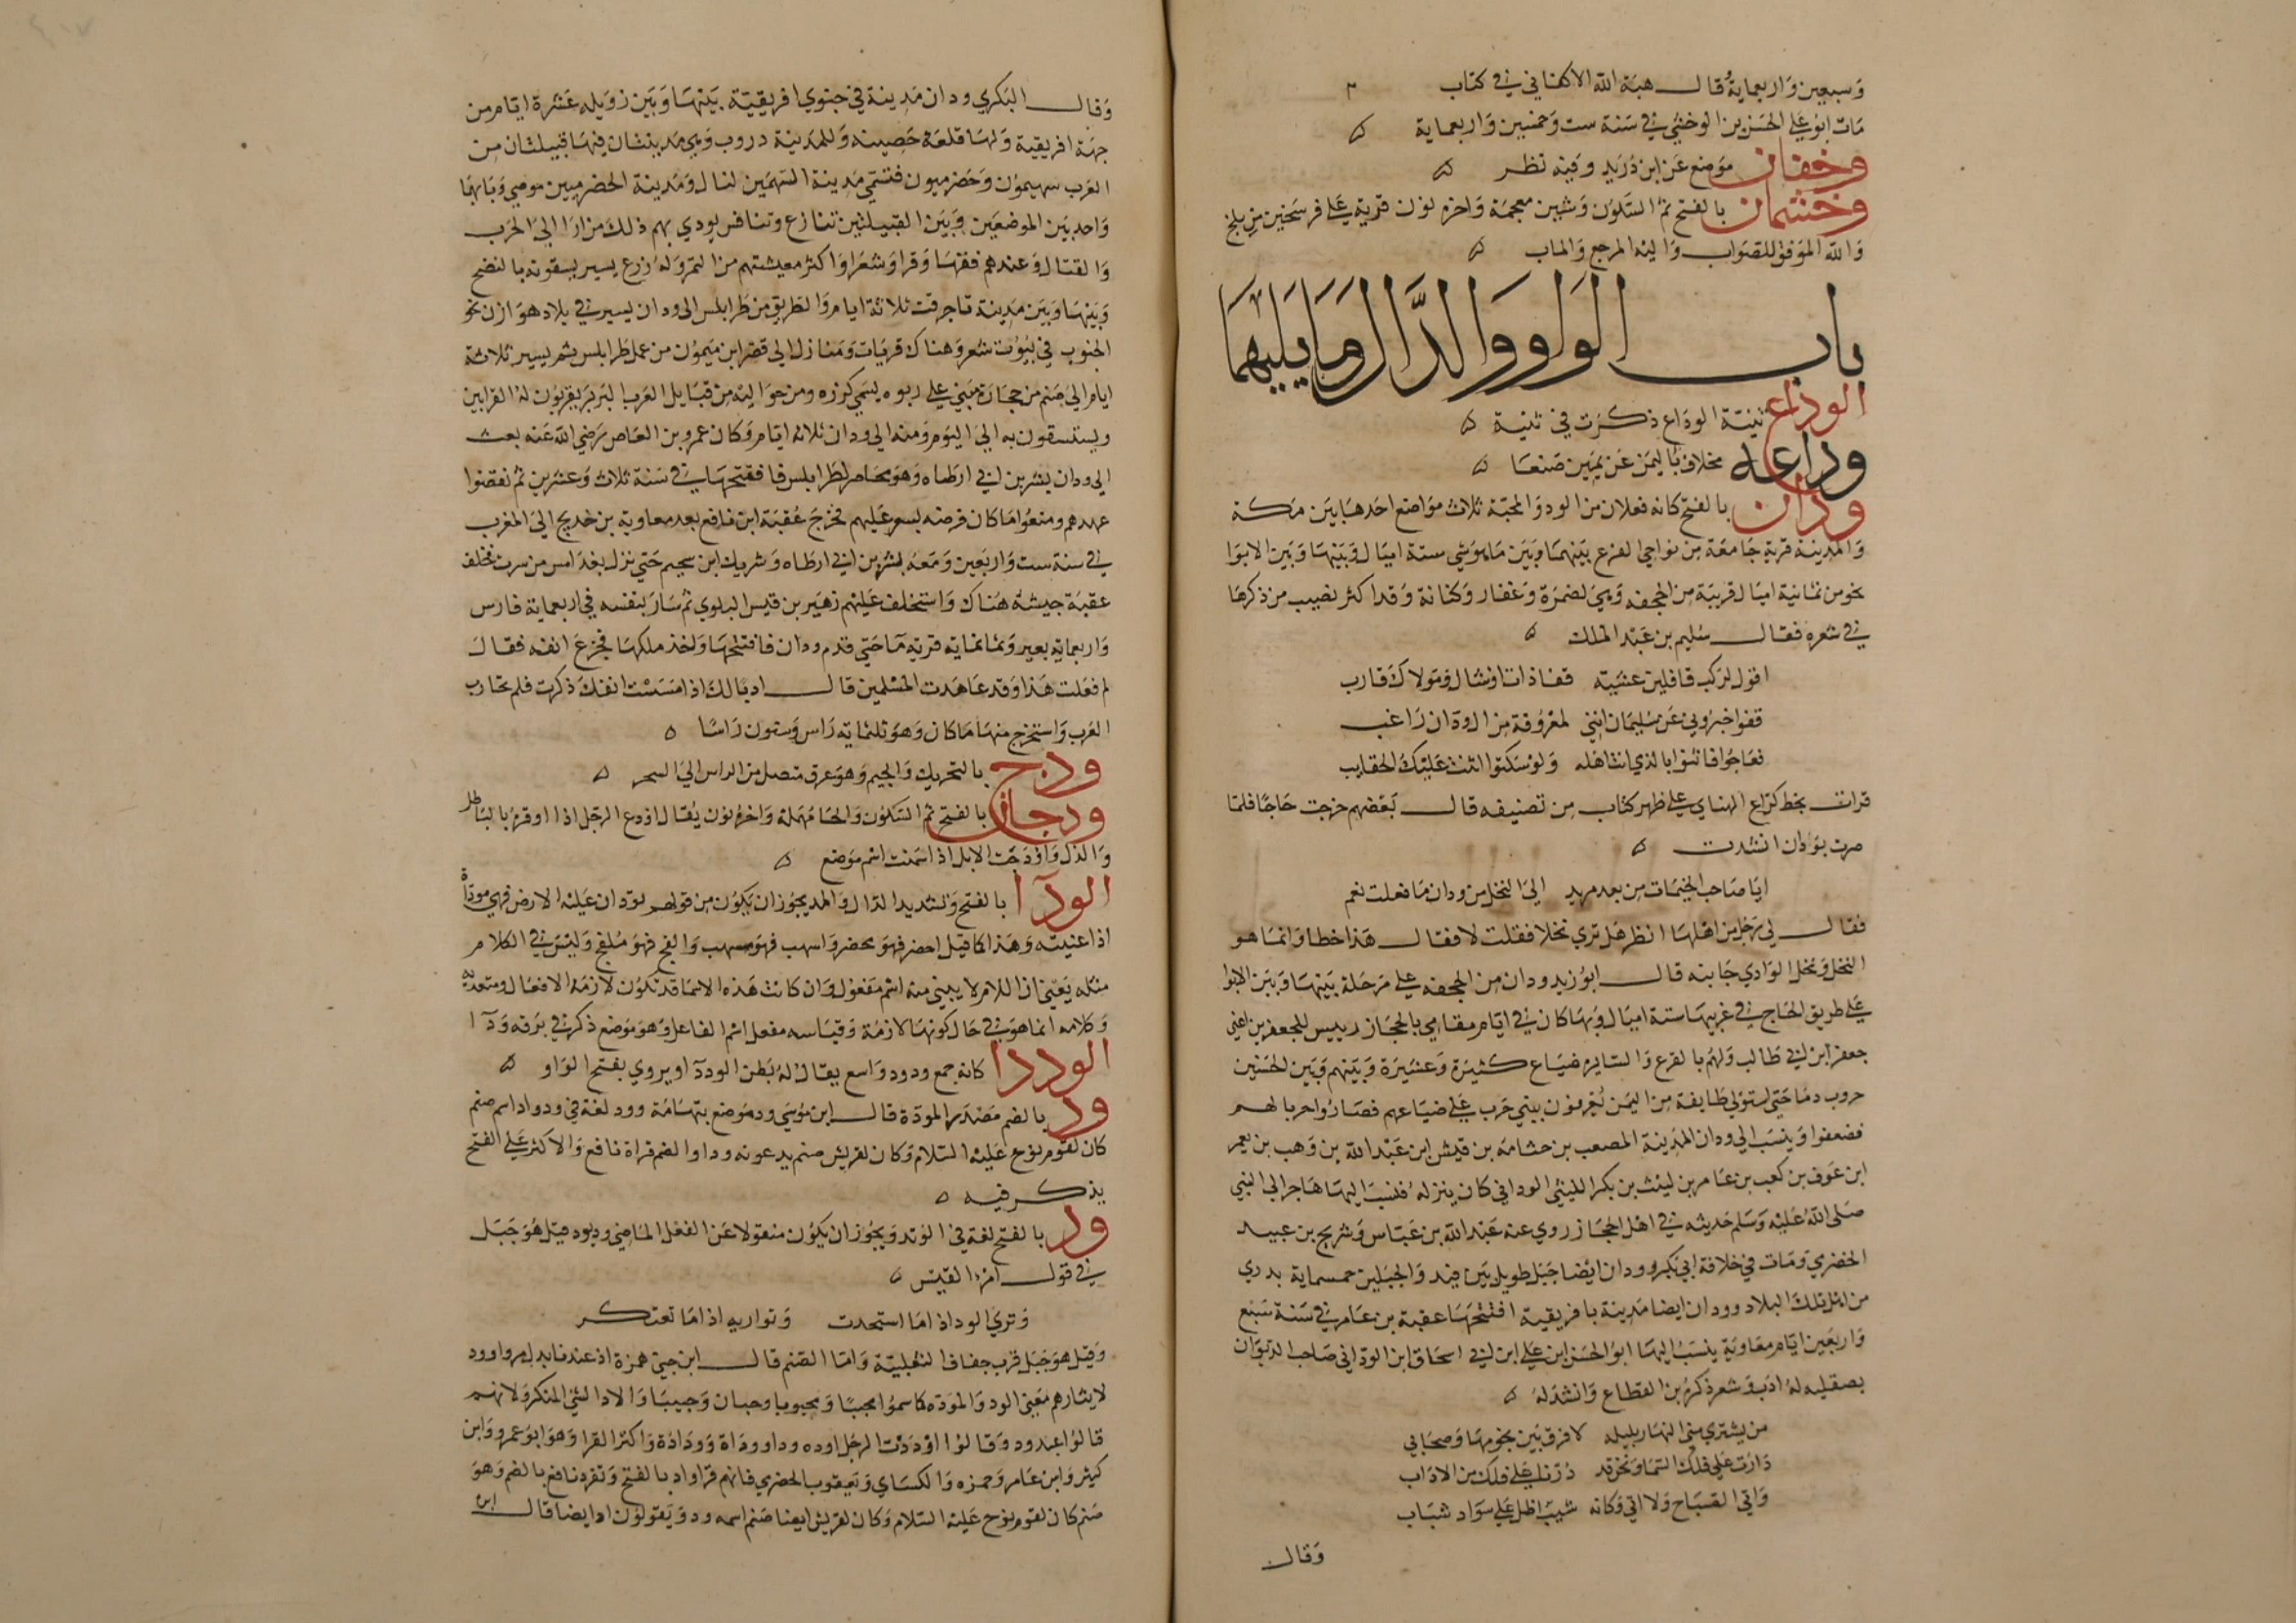 وسبعين واربعماية قال هبة الله الاكفاني في كتاب
مات ابو علي الحسن بن الوخشي في سنة ست وخمسين واربعماية
وخفان موضع عن ابن دريد وفيه نظر
وخشمان بالفتح ثم السكون وشين معجمة واخره نون قرية على فرسخين من بلخ
والله الموفق للصواب واليه المرجع والماب
باب الواو والدال وما يليهما
الوداع ثنية الوداع ذكرت في ثنية
وداعه مخلاف باليمن عن يمين صنعا
ودان بالفتح كانه فعلان من الود والمحبة ثلاث مواضع احدها بين مكة
والمدينة قرية جامعة من نواحي الفرع بينها وبين هرشى ستة اميال وبينها وبين الابوا
نحو من ثمانية اميال قريبة من الجحفه وهي لضمرة وغفار وكنانة وقد اكثر نصيب من ذكرها
في شعره فقال سليم بن عبد الملك
اقول لركب قافلين عشية قفا ذات اوشال ومولاك قارب
قفوا خبروني عن سليمان انني لمعروفة من ال ودان راغب
فعاجوا فاثنوا بالذي انت اهله ولو سكتوا اثنت عليك الحقايب
قرات بخط كراع الهناي على ظهر كتاب من تصنيفه قال بعضهم خرجت حاجا فلما
مرت بودان انشدت
ايا صاحب الخيمات من بعد مرثد الى النخل من ودان ما فعلت نعم
فقال لي رجل من اهلها انظر هل ترى نخلا فقلت لا فقال هذا خطا وانما هو
النحل ونحل الوادي جانبه قال ابو زيد ودان من الجحفه على مرحلة بينها وبين الابوا
على طريق الحاج في غربيها ستة اميال وبها كان في ايام مقامي بالحجاز رييس للجعفريين اعني
جعفر ابن ابي طالب ولهم بالفرع والسايره ضياع كثيرة وعشيرة وبينهم وبين الحسنين
حروب ودما حتى استولى طايفة من اليمن يعرفون ببني حرب على ضياعهم فصاروا حربا لهم
فضعفوا وينسب الى ودان المدينة الصعب بن جثامة بن قيس ابن عبد الله بن وهب بن يعمر
ابن عوف بن كعب بن عامر بن ليث بن بكر الليثي الوداني كان ينزلها فنسب اليها هاجر الى النبي
صلى الله عليه وسلم حديثه في اهل الحجاز روى عنه عبد الله بن عباس وشريح بن عبيد
الحضرمي ومات في خلافة ابي بكر وودان ايضا جبل طويل بين فيد والجبلين خمسماية بدري
من اهل تلك البلاد وودان ايضا مدينة بافريقية افتتحها عقبة بن عامر في سنة سبع
واربعين ايام معاوية ينسب اليها ابو الحسن ابن علي ابن ابي اسحاق ابن الوداني صاحب الديوان
بصقليه له ادب وشعر ذكره بن القطاع وانشد له
من يشتري مني النهار بليلة لا فرق بين نجومها وصحابي
دارت على فلك السما ونحن قد درنا على فلك من الاداب
واتى الصباح ولا اتى وكانه شيب اظل على سواد شباب
وقال
وقال البكري ودان مدينة في جنوبي افريقية بينها وبين زويله عشرة ايام من
جهة افريقية ولها قلعة حصينة وللمدينة دروب وهي مدينتان فيها قبيلتان من
العرب سهميون وحضرميون فتسمى مدينة السهميين لنال ومدينة الحضرميين موصي وبابهما
واحد بين الموضعين وبين القبيلتين تنازع وتنافس يودي بهم ذلك مرارا الى الحرب
والقتال وعندهم فقها وقرا وشعرا واكثر معيشتهم من التمر وله زرع يسير يسقونه بالنضح
وبينها وبين مدينة تاجرفت ثلاثة ايام والطريق من طرابلس الى ودان يسير في بلاد هوارن نحو
الجنوب في بيوت شعر وهناك قريات ومنازل الى قصر ابن ميمون من عمل طرابلس ثم يسير ثلاثة
ايام الى صنم من حجارة مبني على ربوه يسمى كرزه ومن حواليه من قبايل العرب البربر يقربون له القرابين
ويستسقون به الى اليوم ومنه الى ودان ثلاثه ايام وكان عمرو بن العاص رضي الله عنه بعث
الى ودان بشر بن ابي ارطاه وهو محاصر لطرابلس فافتتحها في سنة ثلاث وعشرين ثم نقضوا
عهدهم ومنعوا ما كان فرضه بسر عليهم فخرج عقبة ابن نافع بعد معاوية بن خديج الى المغرب
في سنة ست واربعين ومعه بشر بن ابي ارطاه وشريك ابن سحيم حتى نزل بغدامس من سرت فخلف
عقبة جيشه هناك واستخلف عليهم زهير بن قيس البلوي ثم سار بنفسه في اربعماية فارس
واربعماية بعير وثمانمايه قربة ما حتى قدم ودان فافتتحها واخذ ملكها فجدع انفه فقال
لم فعلت هذا وقد عاهدت المسلمين قال ادبا لك اذا مسست انفك ذكرت فلم تحارب
العرب واستخرج منها ما كان وهو ثلثمايه راس وستون راسا
ودج بالتحريك والجيم وهو عرق متصل من الراس الى السحر
ودحان بالفتح ثم السكون والحا مهملة واخره نون يقال اودح الرجل اذا اوقر بالباطل
والذل واودحت الابل اذا سمنت اسم موضع
الودآ بالفتح وتشديد الدال والمد يجوز ان يكون من قولهم تودات عليه الارض فهي موداة
اذا غيبته وهذا كما قيل احضر فهو محضر واسهب فهو مسهب والفج فهو ملفج وليس في الكلام
مثله يعني ان اللام لا يبنى منه اسم مفعول وان كانت هذه الاسما قد تكون لازمة الافعال ومتعديه
وكلامه انما هو في حال كونها لازمة وقياسه مفعل اسم الفاعل وهو موضع ذكر في برقه ودآ
الوددا كانه جمع ودود واسع يقال له بطن الوددآ ويروى بفتح الواو
ود بالضم مصدر المودة قال ابن موسى ود موضع بتهامة وود لغة في ود واد اسم صنم
كان لقوم نوح عليه السلام وكان لقريش صنم يدعونه ودا والضم قراة نافع والاكثر على الفتح
يذكر فيه
ود بالفتح لغة في الوتد ويجوز ان يكون منقولا عن الفعل الماضي ود يود قيل هو جبل
في قول امرا القيس
وترى الود اذا ما اشجذت وتواريه اذا ما تعتكر
وقيل هو جبل قرب جفاف الثعلبية واما الصنم قال ابن جني همزة اد عندنا بدل من واو ود
لايثارهم معنى الود والموده كما سموا محببا ومحبوبا وحبان وحبيبا والاد الشي المنكر ولانهم
قالوا عبدود وقالوا وددت الرجل اوده ودا وودادة وودادة واكثر القرا وهو ابو عمرو وابن
كثير وابن عامر وحمزه والكسائي ويعقوب الحضرمي فانهم قراوا ود بالفتح وتفرد نافع بالضم وهو
صنم كان لقوم نوح عليه السلام وكان لقريش ايضا صنم اسمه ود ويقولون اد ايضا قال ابن